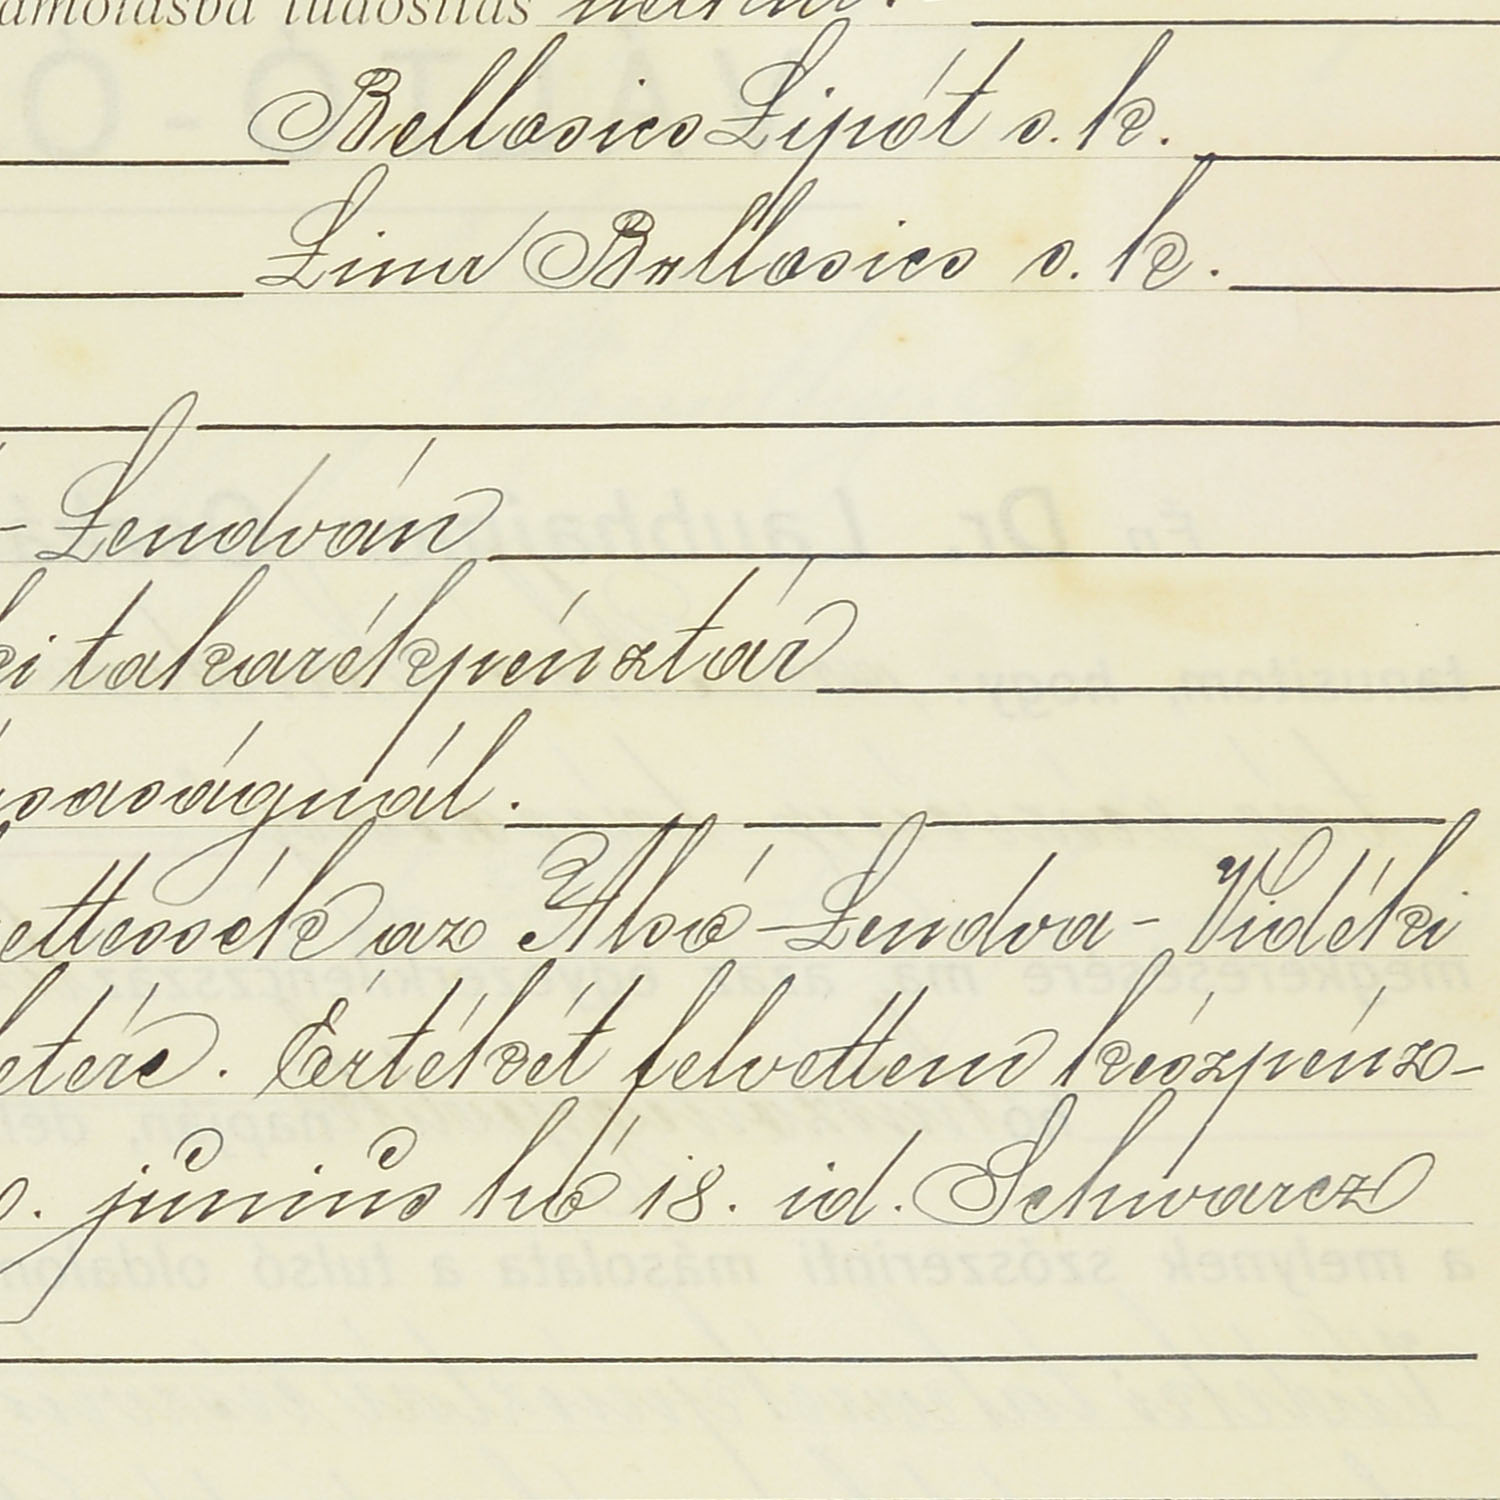 számolásba tudósítás nélkül.
Bellosics Lipót s. k.
Lina Bellosics s. k.
- Lendván
ki takarékpénztár
saságnál.
ettessék az Alsó-Lendva-Vidéki
letére. Értékét felvettem készpénz-
junius hó 18. id. Schwarcz